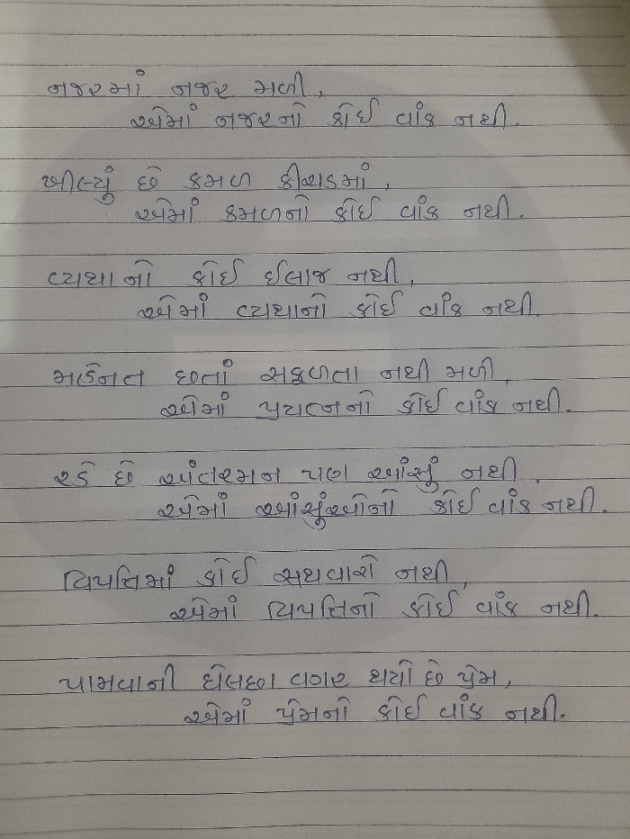 નજરમાં નજર મળી,
એમાં નજરનો કોઈ વાંક નથી.
ખીલ્યું છે કમળ કીચડમાં,
એમાં કમળનો કોઈ વાંક નથી.
વ્યથાનો કોઈ ઈલાજ નથી,
એમાં વ્યથાનો કોઈ વાંક નથી.
મહેનત છતાં સફળતા નથી મળી,
એમાં પ્રયત્નનો કોઈ વાંક નથી.
રડે છે અંતરમન પણ આંસું નથી,
એમાં આંસુંઓનો કોઈ વાંક નથી.
વિપત્તિમાં કોઈ સથવારો નથી,
એમાં વિપત્તિનો કોઈ વાંક નથી.
પામવાની ઘેલછા વગર થયો છે પ્રેમ,
એમાં પ્રેમનો કોઈ વાંક નથી.